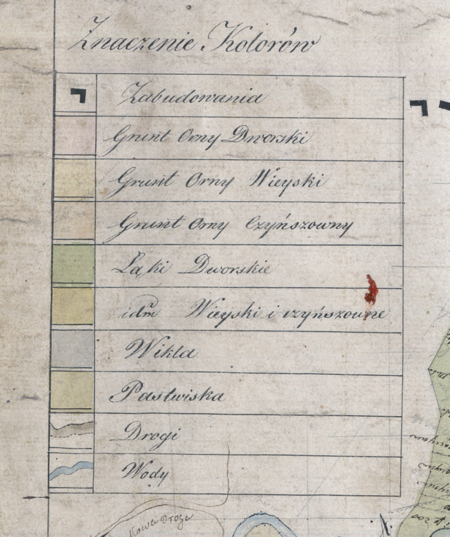 Znaczenie Kolorów
Zabudowania
Grunt Orny Dworski
Grunt Orny Wieyski
Grunt Orny Czyńszowny
Łąki Dworskie
idm Wieyski i czyńszowne
Wikla
Pastwiska
Drogi
Wody